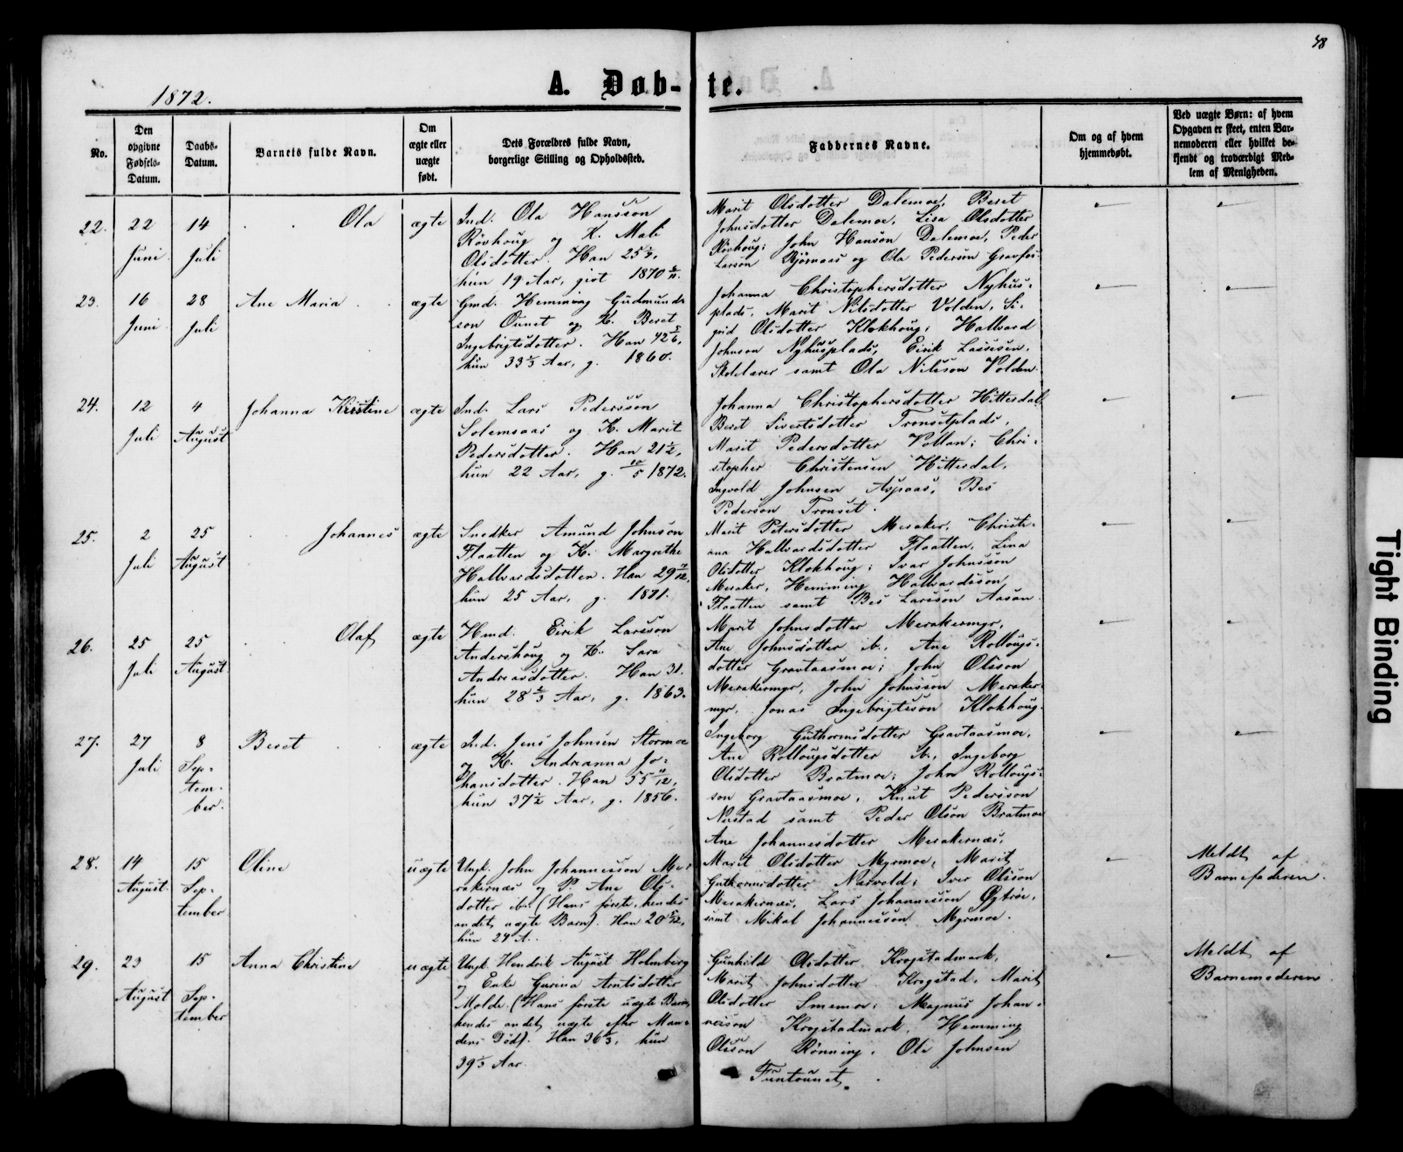 48
1872.
A. Døb-te.
No.
Den opgivne Fødsels-Datum.
Daabs-Datum.
Barnets fulde Navn.
Om ægte eller uægte født.
Dets Forældres fulde Navn, borgerlige Stilling og Opholdssted.
Faddernes Navne.
Om og af hvem hjemmedøbt.
Ved uægte Børn: af hvem Opgaven er skeet, enten Barnemoderen eller hvilket bekjendt og troværdigt Medlem af Menigheden.
22. 22 Juni 14 Juli Ola ægte
Ind. Ola Hansson
Røvhoug og K. Mali
Olsdotter. Han 25
hun 19 Aar, givt 1870
Marit Olsdotter Dalemoe, Beret
Johnsdotter Dalemoe, Lisa Olsdotter
Røvhoug; John Hanson Dalemoe, Peder
Larson Bjørnaas og Ola Pederson
23. 16 Juni 28 Juli Ane Maria ægte
Gmd. Hemming Gudmunds
son Ounet og K. Beret
Ingebrigtsdotter. Han 42
hun 33 Aar, g. 1860.
Johanna Christophersdotter Nyhus-
plads, Marit Nilsdotter Volden, Si-
grid Olsdotter Klokhoug; Hallvard
Johnson Nyhusplads, Eirik Lassesen,
Skolelærer samt Ola Nilsson Volden.
24. 12 Juli 4 August Johanna Kristine ægte
Ind. Lars Pedersson
Solemsaas og K. Marit
Pedersdotter. Han 21½,
hun 22 Aar, g. 1872.
Johanna Christophersdotter Hittesdal
Beret Sivertsdotter Tronsetplads,
Marit Pedersdotter Vollan; Chri-
stopher Christensen Hittesdal,
Ingvald Johnsen Aspaas,
Pederson Tronset.
25. 2 Juli 25 August Johannes ægte
Snedker Amund Johnson
Flaatten og K. Margrethe
Hallvardsdotter. Han 29
hun 25 Aar, g. 1871.
Marit Petersdotter Meraker, Christi-
ana Hallvardsdotter Flaatten, Lina
Olsdotter Klokhoug; Ivar Johnsson
Meraker, Hemming Hallvardsson
Flaatten samt Larsson Aasan.
26. 25 Juli 25 August Olaf ægte
Hmd. Eirik Larsson
Andershoug og K. Sara
Andreasdotter. Han 31.
hun 28 Aar, g. 1863.
Marit Johnsdotter Merakermyr,
Ane Johnsdotter St., Ane Rollougs-
dotter Gravtaasmoe; John Olsson
Merakermyr, John Johnsson Meraker-
myr, Jonas Ingebrigtsson Klokhoug.
27. 27 Juli 8 September Beret ægte
Ind. Jens Johnsen Stormoe
og K. Andrianna Jo-
hansdotter. Han 55
hun 37½ Aar, g. 1856.
Ingeborg Guthormsdotter Gravtaasmoe,
Ane Rollougsdotter St., Ingeborg
Olsdotter Bratmoe; John Rollougs-
son Gravtaasmoe, Knut Pedersson
Nustad samt Peder Olson Bratmoe
28. 14 August 15 September Oline uægte
Ungk. John Johannesson Me-
rakernæs og P. Ane Ols-
dotter (Hans første, hendes
andet, uægte Barn). Han 20
hun 24 A.
Ane Johannesdotter Merakernæs,
Marit Olsdotter Myrmoe, Marit
Guthormsdotter Narvold; Iver Olsson
Merakernæs, Lars Johannesson
samt Mikal Johannesson Myrmoe.
Meldt af
Barnefaderen.
29. 23 August 15 September Anna Christine uægte
Ungk. Hendrik August Holmberg
og Enke Gurina Arntsdotter
Molde. (Hans første uægte Barn,
hendes andet uægte efter Man-
dens Død). Han 36 hun
39 Aar.
Gunhild Olsdotter Krogstadmark,
Marit Johnsdotter Krogstad, Marit
Olsdotter Smemoe; Magnus Johan-
nesson Krogstadmark, Hemming
Olsson Rønning, Ole Johnsen
Funtaunet.
Meldt af
Barnemoderen
Tight Binding